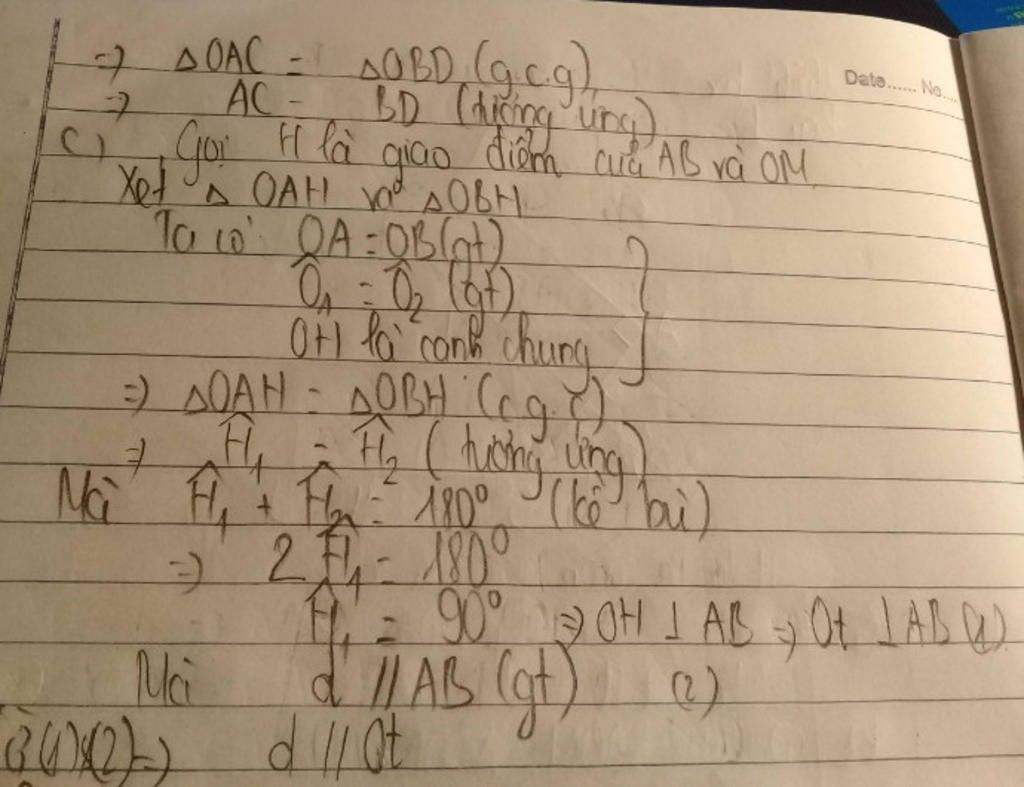 => △OAC = △OBD (g.c.g)
Date...... No....
=> AC = BD (tương ứng)
c) Gọi H là giao điểm của AB và OM
Xét △ OAH và △OBH
Ta có: OA = OB (gt)
Ô₁ = Ô₂ (gt)
OH là cạnh chung
=> △OAH = △OBH (c.g.c)
=> Ĥ₁ = Ĥ₂ (tương ứng)
Mà Ĥ₁ + Ĥ₂ = 180° (kề bù)
=> 2Ĥ₁ = 180°
Ĥ₁ = 90° => OH ⊥ AB => Ot ⊥ AB (1)
Mà d // AB (gt) (2)
(1)&(2) => d // Ot